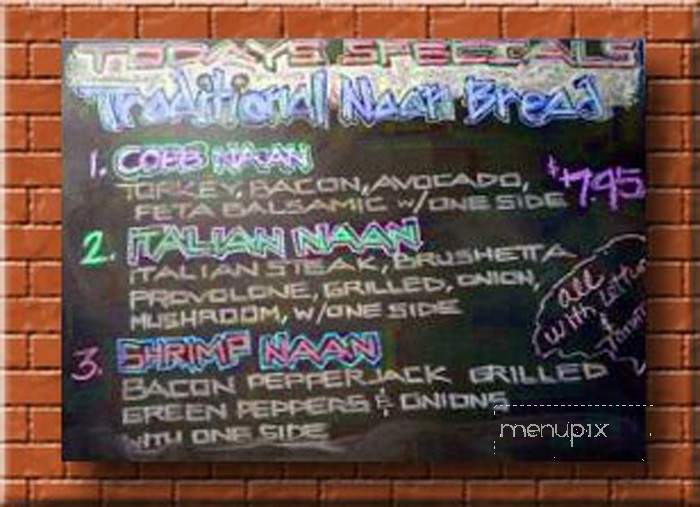 TODAYS SPECIALS
Traditional Naan Bread
1. COBB NAAN
TURKEY, BACON, AVOCADO,
FETA BALSAMIC W/ONE SIDE
$7.95
2. ITALIAN NAAN
ITALIAN STEAK, BRUSHETTA
PROVOLONE, GRILLED, ONION,
MUSHROOM, W/ONE SIDE
all
with
&
3. SHRIMP NAAN
BACON PEPPERJACK GRILLED
GREEN PEPPERS & ONIONS
WITH ONE SIDE
menupix